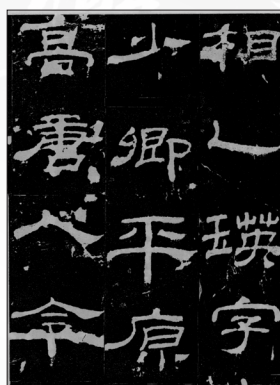 相乙瑛字
少卿平原
高唐人令